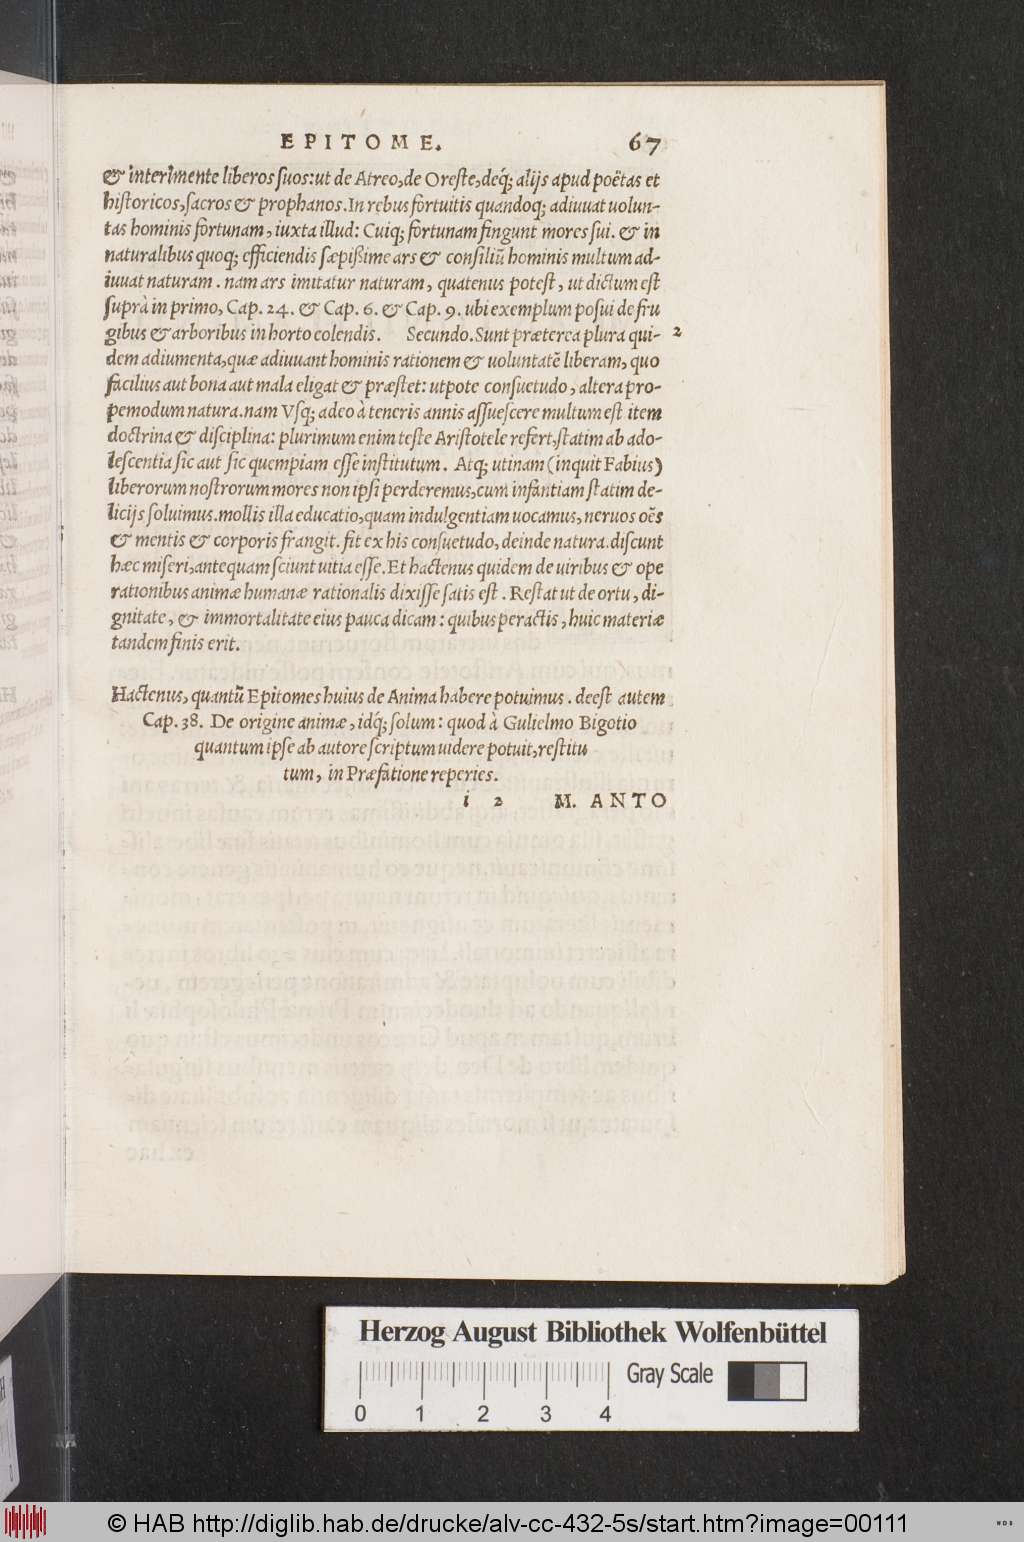 EPITOME. 67
& interimente liberos suos: ut de Atreo, de Oreste, deq́; alijs apud poëtas et
historicos, sacros & prophanos. In rebus fortuitis quandoq; adiuuat uolun-
tas hominis fortunam, iuxta illud: Cuiq; fortunam fingunt mores sui. & in
naturalibus quoq; efficiendis sæpißime ars & consiliũ hominis multum ad-
iuuat naturam. nam ars imitatur naturam, quatenus potest, ut dictum est
suprà in primo, Cap. 24. & Cap. 6. & Cap. 9. ubi exemplum posui de fru
gibus & arboribus in horto colendis. Secundo. Sunt præterea plura qui- 2
dem adiumenta, quæ adiuuant hominis rationem & uoluntatẽ liberam, quo
facilius aut bona aut mala eligat & præstet: utpote consuetudo, altera pro-
pemodum natura. nam Vsq; adeo à teneris annis assuescere multum est item
doctrina & disciplina: plurimum enim teste Aristotele refert, statim ab ado-
lescentia sic aut sic quempiam esse institutum. Atq; utinam (inquit Fabius)
liberorum nostrorum mores non ipsi perderemus, cum infantiam statim de-
licijs soluimus. mollis illa educatio, quam indulgentiam uocamus, neruos oẽs
& mentis & corporis frangit. fit ex his consuetudo, deinde natura. discunt
hæc miseri, antequam sciunt uitia esse. Et hactenus quidem de uiribus & ope
rationibus animæ humanæ rationalis dixisse satis est. Restat ut de ortu, di-
gnitate, & immortalitate eius pauca dicam: quibus peractis, huic materiæ
tandem finis erit.
Hactenus, quantũ Epitomes huius de Anima habere potuimus. deest autem
Cap. 38. De origine animæ, idq́; solum: quod à Gulielmo Bigotio
quantum ipse ab autore scriptum uidere potuit, restitu
tum, in Præfatione reperies.
i 2 M. ANTO
Herzog August Bibliothek Wolfenbüttel
Gray Scale
0 1 2 3 4
© HAB http://diglib.hab.de/drucke/alv-cc-432-5s/start.htm?image=00111